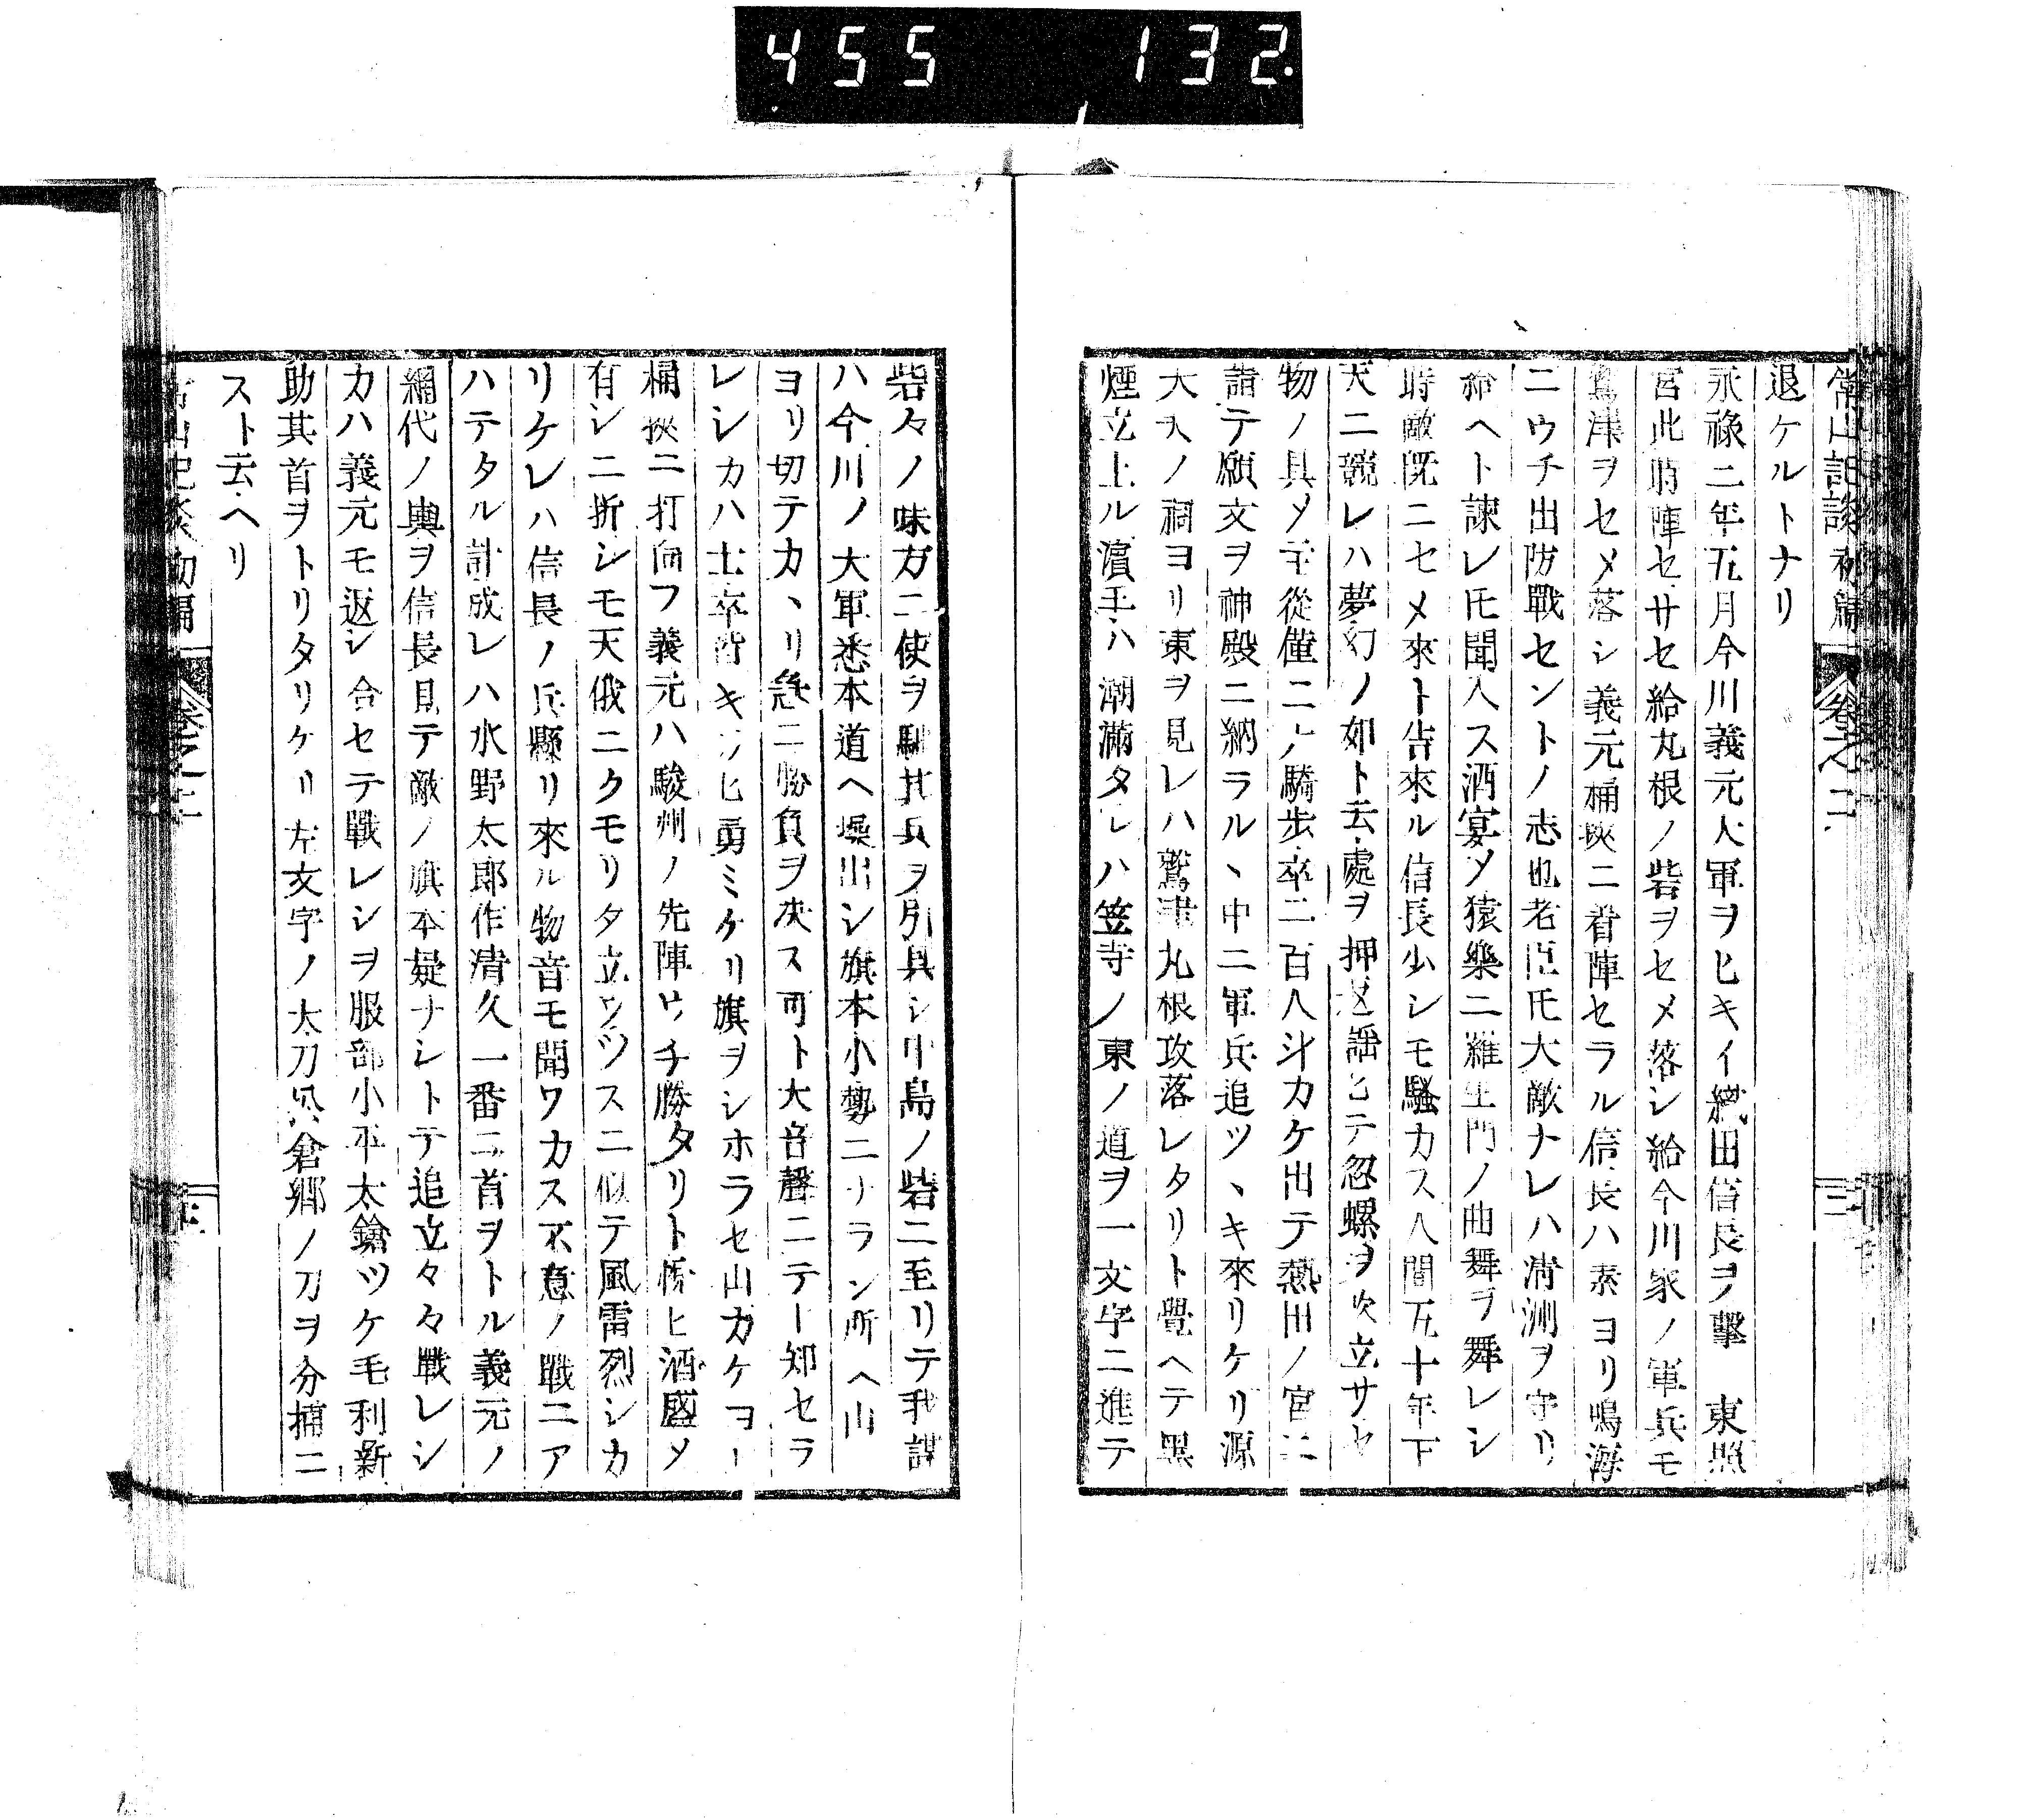 455 132
常山記談初編 卷之二 三
退ケルトナリ
永祿二年五月今川義元大軍ヲヒキイ織田信長ヲ擊 東照
宮此時陣セサセ給丸根ノ砦ヲセメ落シ給今川家ノ軍兵モ
鷲津ヲセメ落シ義元桶狹ニ着陣セラル信長ハ素ヨリ鳴海
ニウチ出防戰セントノ志也老臣圧大敵ナレハ淸洲ヲ守リ
給ヘト諫レ圧聞入ス酒宴メ猿樂ニ羅生門ノ曲舞ヲ舞レシ
時敵既ニセメ來ト告來ル信長少シモ騷カス人間五十年下
天ニ競レハ夢幻ノ如ト云處ヲ押返謡ヒテ忽螺ヲ吹立サセ
物ノ具メ主從僅ニ六騎步卒二百人斗カケ出テ熱田ノ宮ニ
詣テ願文ヲ神殿ニ納ラルヽ中ニ軍兵追ツヽキ來リケリ源
大夫ノ祠ヨリ東ヲ見レハ鷲津丸根攻落レタリト覺ヘテ黑
煙立上ル濱手ハ潮滿タレハ笠寺ノ東ノ道ヲ一文字ニ進テ
砦々ノ味方ニ使ヲ馳其兵ヲ引具シ中島ノ砦ニ至リテ我謀
ハ今川ノ大軍悉本道ヘ操出シ旗本小勢ニナラン所ヘ山
ヨリ切テカヽリ急ニ勝負ヲ决ス可ト大音聲ニテ下知セラ
レシカハ士卒皆キソヒ勇ミケリ旗ヲシホラセ山カケヨリ
桶狹ニ打向フ義元ハ駿州ノ先陣ウチ勝タリト悅ヒ酒盛メ
有シニ折シモ天俄ニクモリタ立ウツスニ似テ風雷烈シカ
リケレハ信長ノ兵懸リ來ル物音モ聞ワカス不意ノ戰ニア
ハテタル計成レハ水野太郎作淸久一番ニ首ヲトル義元ノ
網代ノ輿ヲ信長見テ敵ノ旗本疑ナシトテ追立々々戰レシ
カハ義元モ返シ合セテ戰レシヲ服部小平太鎗ツケ毛利新
助其首ヲトリタリケリ左文字ノ太刀松倉鄕ノ刀ヲ分捕ニ
スト云ヘリ